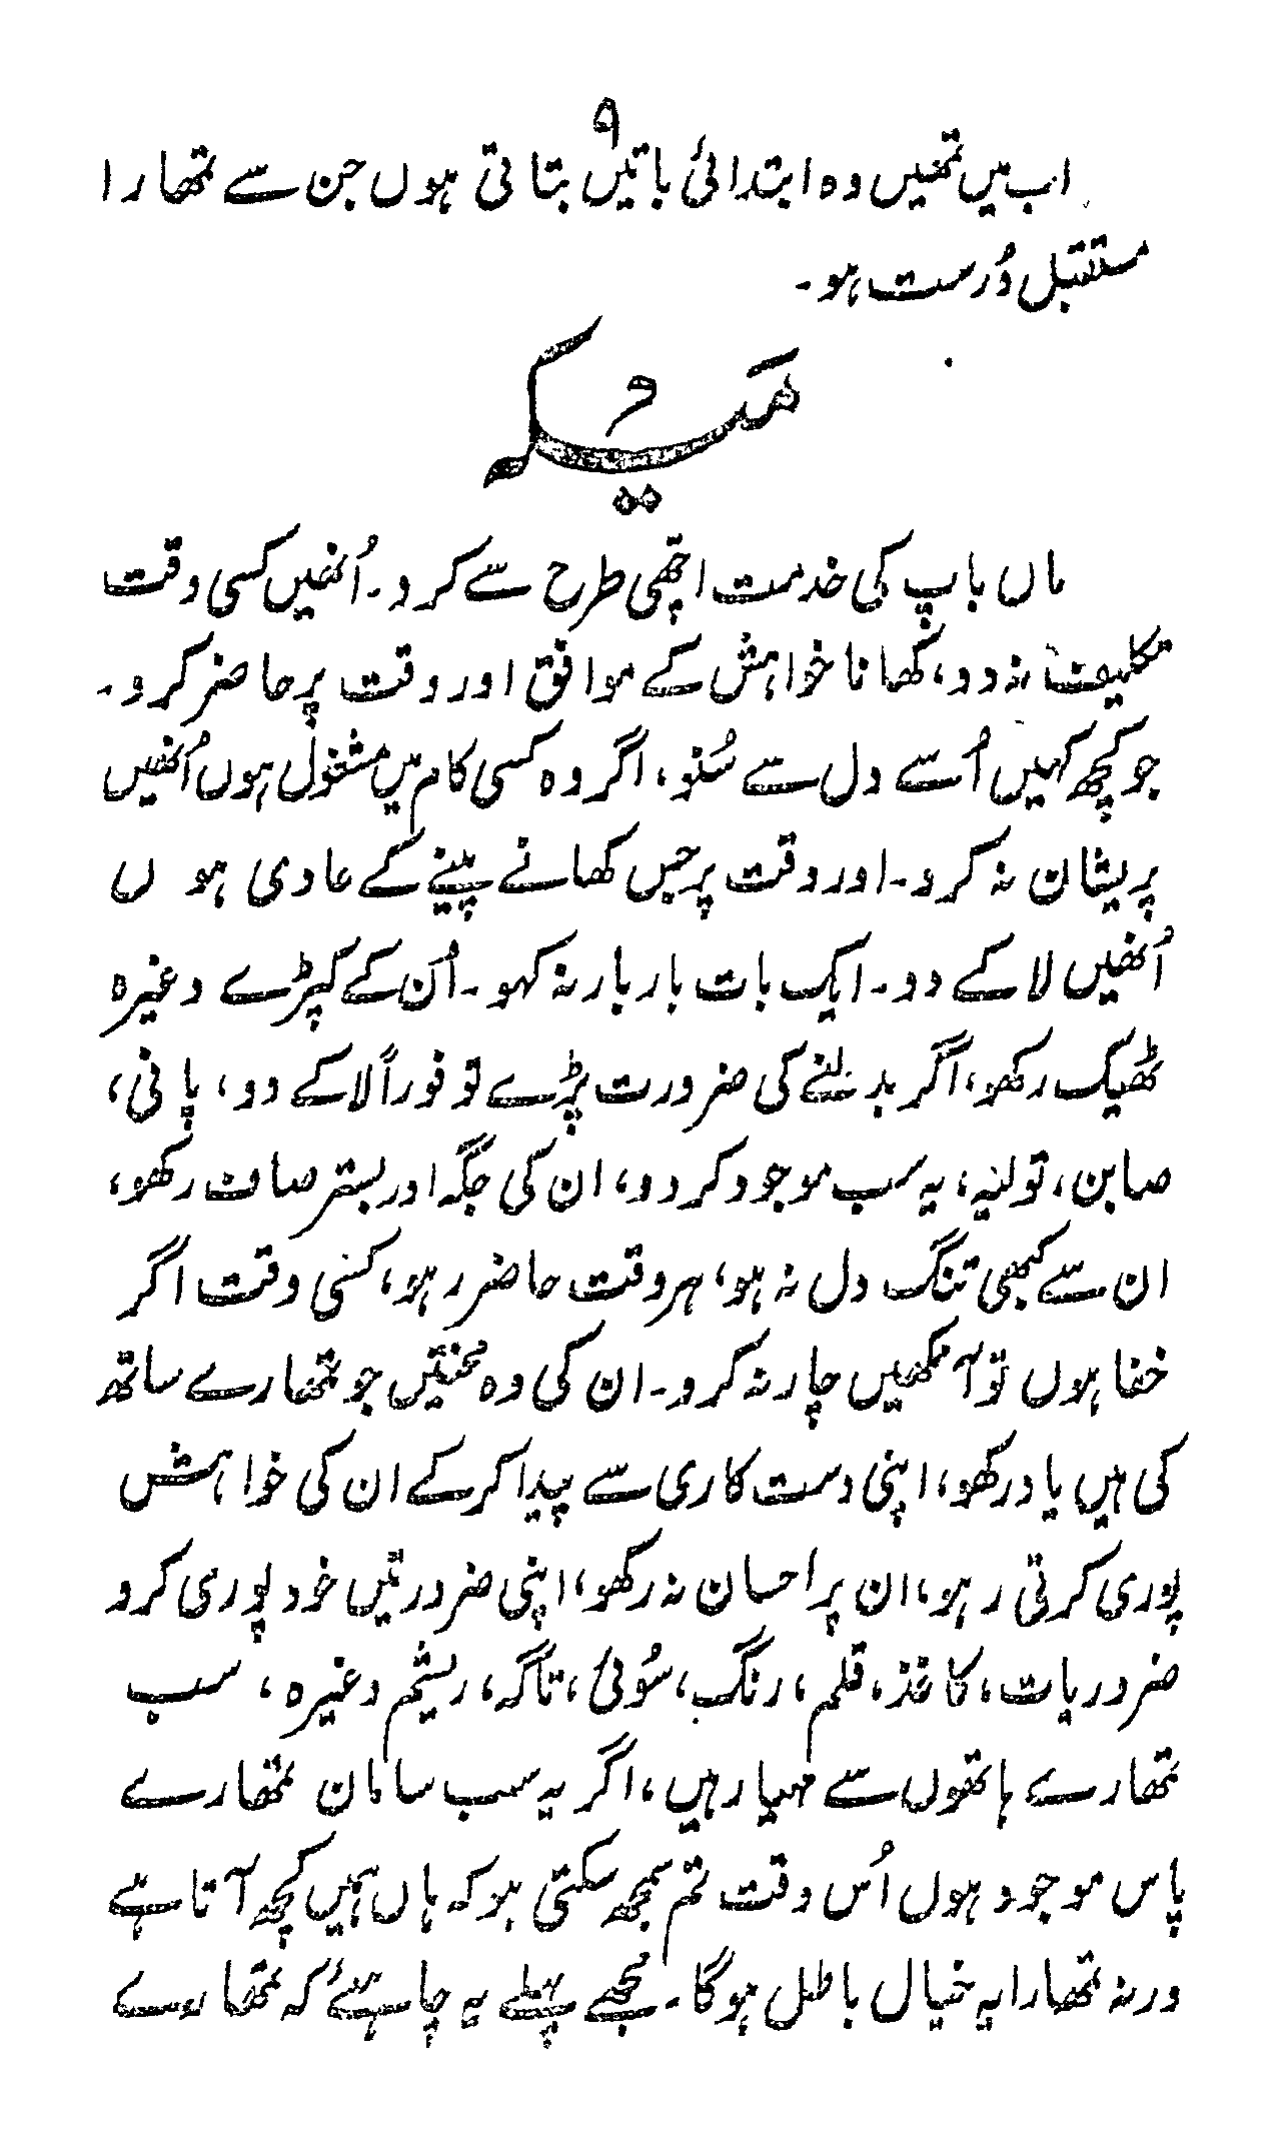 ۹
اب میں تمھیں وہ ابتدائی باتیں بتاتی ہوں جن سے تمھارا
مستقبل دُرست ہو۔
میکہ
ماں باپ کی خدمت اچھی طرح سے کرو۔ اُنھیں کسی وقت
تکلیف نہ دو، کھانا خواہش کے موافق اور وقت پر حاضر کرو۔
جو کچھ کہیں اُسے دل سے سُنو، اگر وہ کسی کام میں مشغول ہوں اُنھیں
پریشان نہ کرو۔ اور وقت پر جس کھانے پینے کے عادی ہوں
اُنھیں لاکے دو۔ ایک بات بار بار نہ کہو۔ اُن کے کپڑے وغیرہ
ٹھیک رکھو، اگر بدلنے کی ضرورت پڑے تو فوراً لاکے دو، پانی،
صابن، تولیہ، یہ سب موجود کردو، ان کی جگہ اور بستر صاف رکھو،
ان سے کبھی تنگ دل نہ ہو، ہر وقت حاضر رہو، کسی وقت اگر
خفا ہوں تو آنکھیں چار نہ کرو۔ ان کی وہ محنتیں جو تمھارے ساتھ
کی ہیں یاد رکھو، اپنی دست کاری سے پیدا کرکے ان کی خواہش
پوری کرتی رہو، ان پر احسان نہ رکھو، اپنی ضرورتیں خود پوری کرو
ضروریات، کاغذ، قلم، رنگ، سُوئی، تاگہ، ریشم وغیرہ، سب
تمھارے ہاتھوں سے مہیا رہیں، اگر یہ سب سامان تمھارے
پاس موجود ہوں اُس وقت تم سمجھ سکتی ہو کہ ہاں ہمیں کچھ آتا ہے
ورنہ تمھارا یہ خیال باطل ہوگا۔ مجھے پہلے یہ چاہئے کہ تمھارے